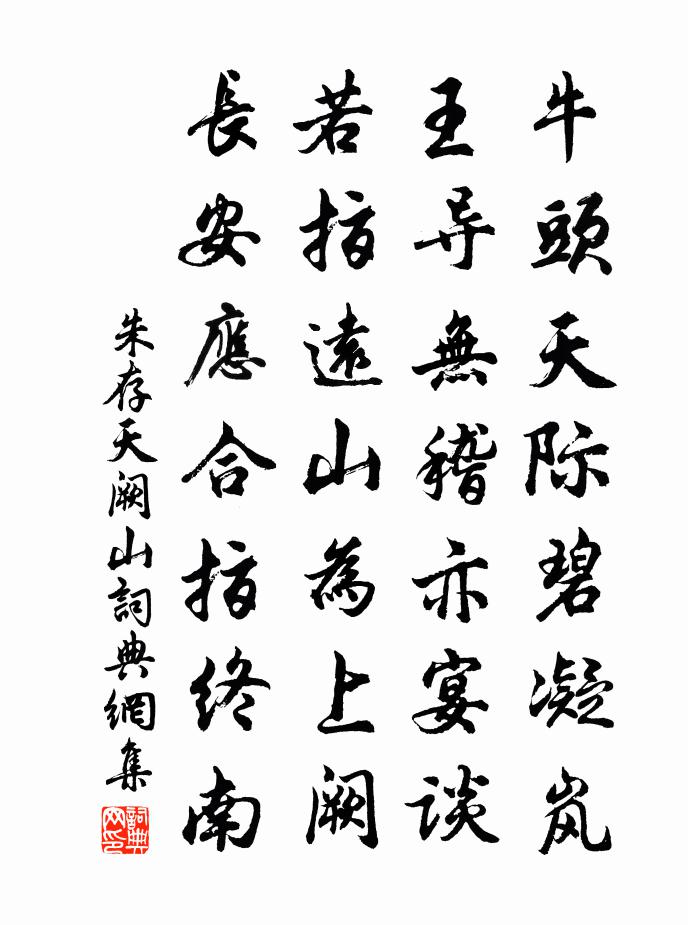 牛頭天际碧凝岚
王导無稽亦宴谈
若指遠山為上阙
長安應合指终南
朱存天阙山詞典網集
詞典
网印